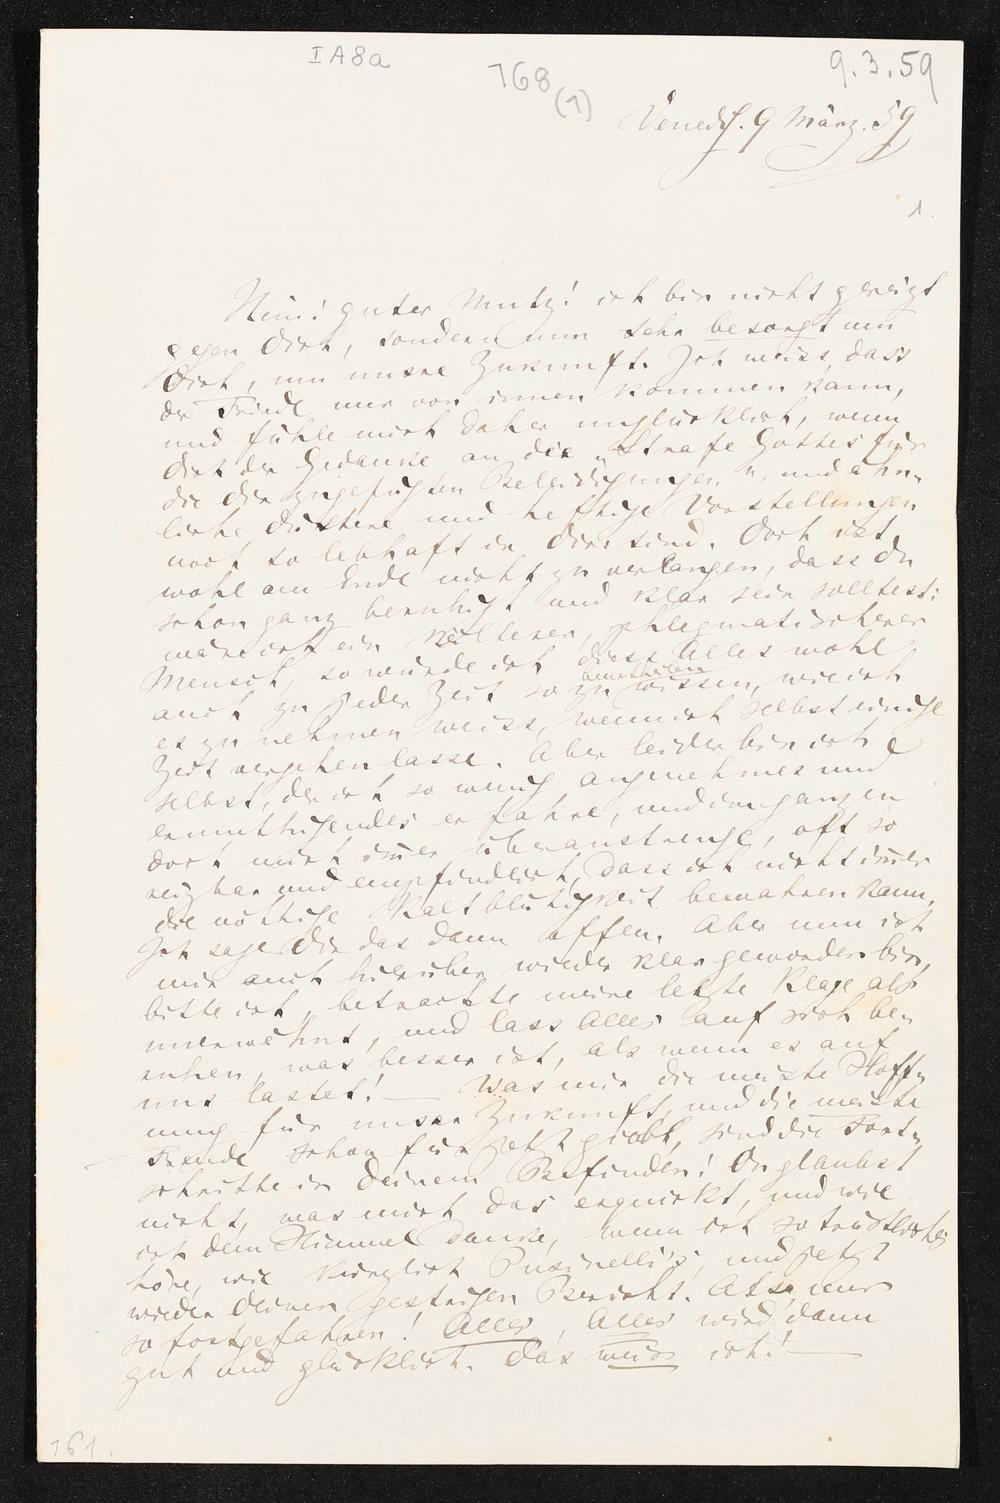 I A 8 a
168
(1)
9.3.59
Venedig. 9 März. 59
1.
Nun! guter Mutz! ich bin nicht gereizt
gegen Dich, sondern nur sehr besorgt um
Dich, um unsre Zukunft. Ich weiss, dass
der Friede nur von innen kommen kann,
und fühle mich daher unglücklich, wenn
Dich der Gedanke an die „Strafe Gottes für
die Dir zugefügten Beleidigungen", und ähn-
liche düstere und heftige Vorstellungen
noch so lebhaft in Dir sind. Doch ist
wohl am Ende nicht zu verlangen, dass Du
schon ganz beruhigt und klar sein solltest:
wäre ich ein kälterer, phlegmatischerer
Mensch, so würde ich diess Alles wohl
auch zu jeder Zeit so zu wissen, wie ich
es zu nehmen weiss, wenn ich selbst einige
Zeit vergehen lasse. Aber leider bin ich
selbst, der ich so wenig angenehmes und
ermuthigendes erfahre, und im ganzen
doch mich im̅er überanstrenge, oft so
reizbar und empfindlich, dass ich nicht im̅er
die nöthige Kaltblütigkeit bewahren kann.
Ich sage Dir das dann offen. Aber nun ich
mir auch hierüber wieder klar geworden bin,
bitte ich, betrachte meine letzte Klage als
unerwähnt, und lass Alles auf sich be-
ruhen, was besser ist, als wenn es auf
uns lastet! — Was mir die meiste Hoff-
nung für unsre Zukunft, und die meiste
Freude schon für jetzt giebt, sind die Fort-
schritte in Deinem Befinden! Du glaubst
nicht, was mich das erquickt, und wie
ich dem Himmel danke, wenn ich so tröstliches
höre, wie kürzlich Pusinelli's, und jetzt
wieder Deinen gestrigen Bericht. Also, nur
so fortgefahren! Alles, Alles wird dann
gut und glücklich. Das weiss ich! —
161.